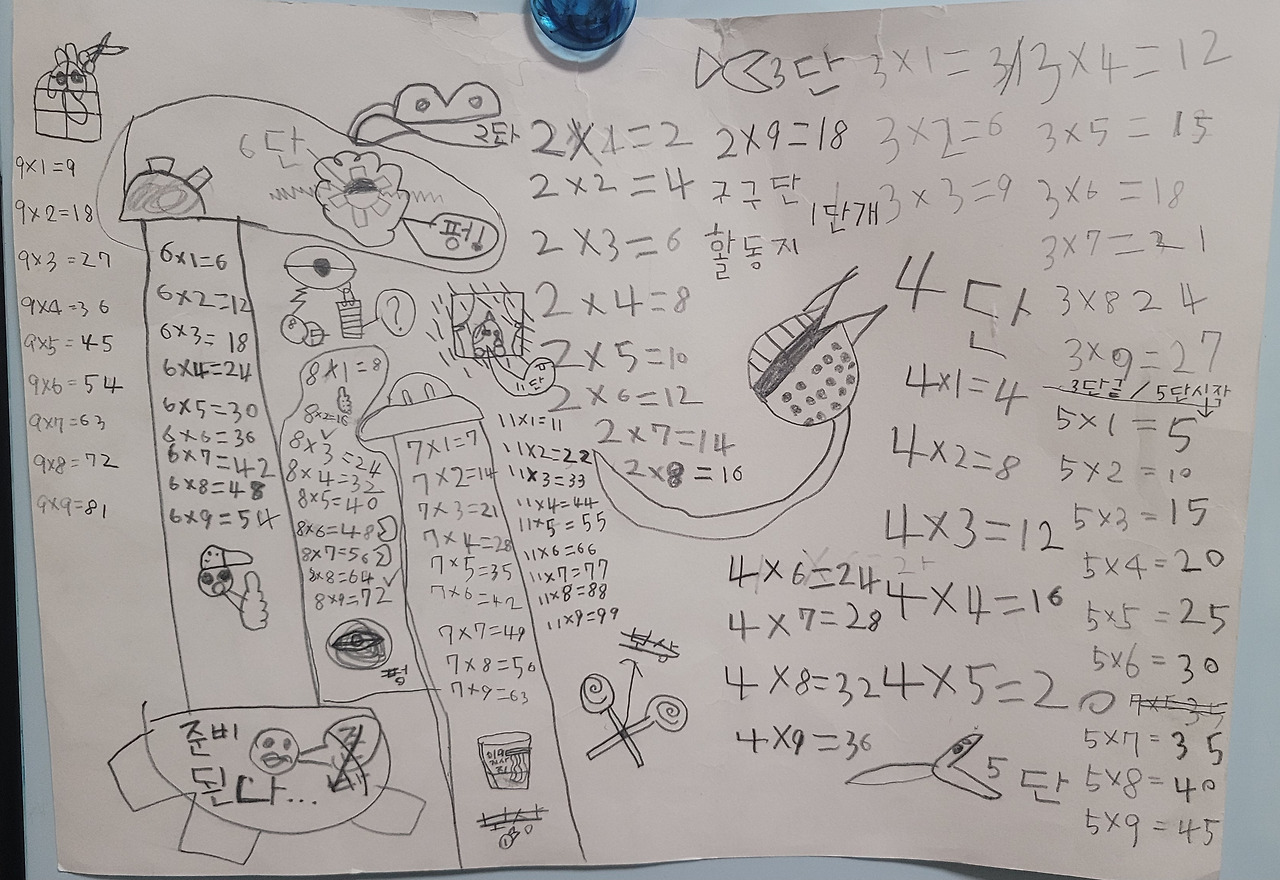 9×1=9
9×2=18
9×3=27
9×4=36
9×5=45
9×6=54
9×7=63
9×8=72
9×9=81
6단
펑!
6×1=6
6×2=12
6×3=18
6×4=24
6×5=30
6×6=36
6×7=42
6×8=48
6×9=54
준비
된다...
?
8
8×1=8
8×2=16
8×3=24
8×4=32
8×5=40
8×6=48
8×7=56
8×8=64
8×9=72
펑
7×1=7
7×2=14
7×3=21
7×4=28
7×5=35
7×6=42
7×7=49
7×8=56
7×9=63
11단
11×1=11
11×2=22
11×3=33
11×4=44
11×5=55
11×6=66
11×7=77
11×8=88
11×9=99
2단
2×1=2
2×2=4
2×3=6
2×4=8
2×5=10
2×6=12
2×7=14
2×8=16
2×9=18
구구단
1단개
활동지
3단
3×1=3
3×2=6
3×3=9
3×4=12
3×5=15
3×6=18
3×7=21
3×8 24
3×9=27
3단끝/5단시작
4단
4×1=4
4×2=8
4×3=12
4×4=16
4×5=20
4×6=24
4×7=28
4×8=32
4×9=36
5단
5×1=5
5×2=10
5×3=15
5×4=20
5×5=25
5×6=30
5×7=35
5×8=40
5×9=45